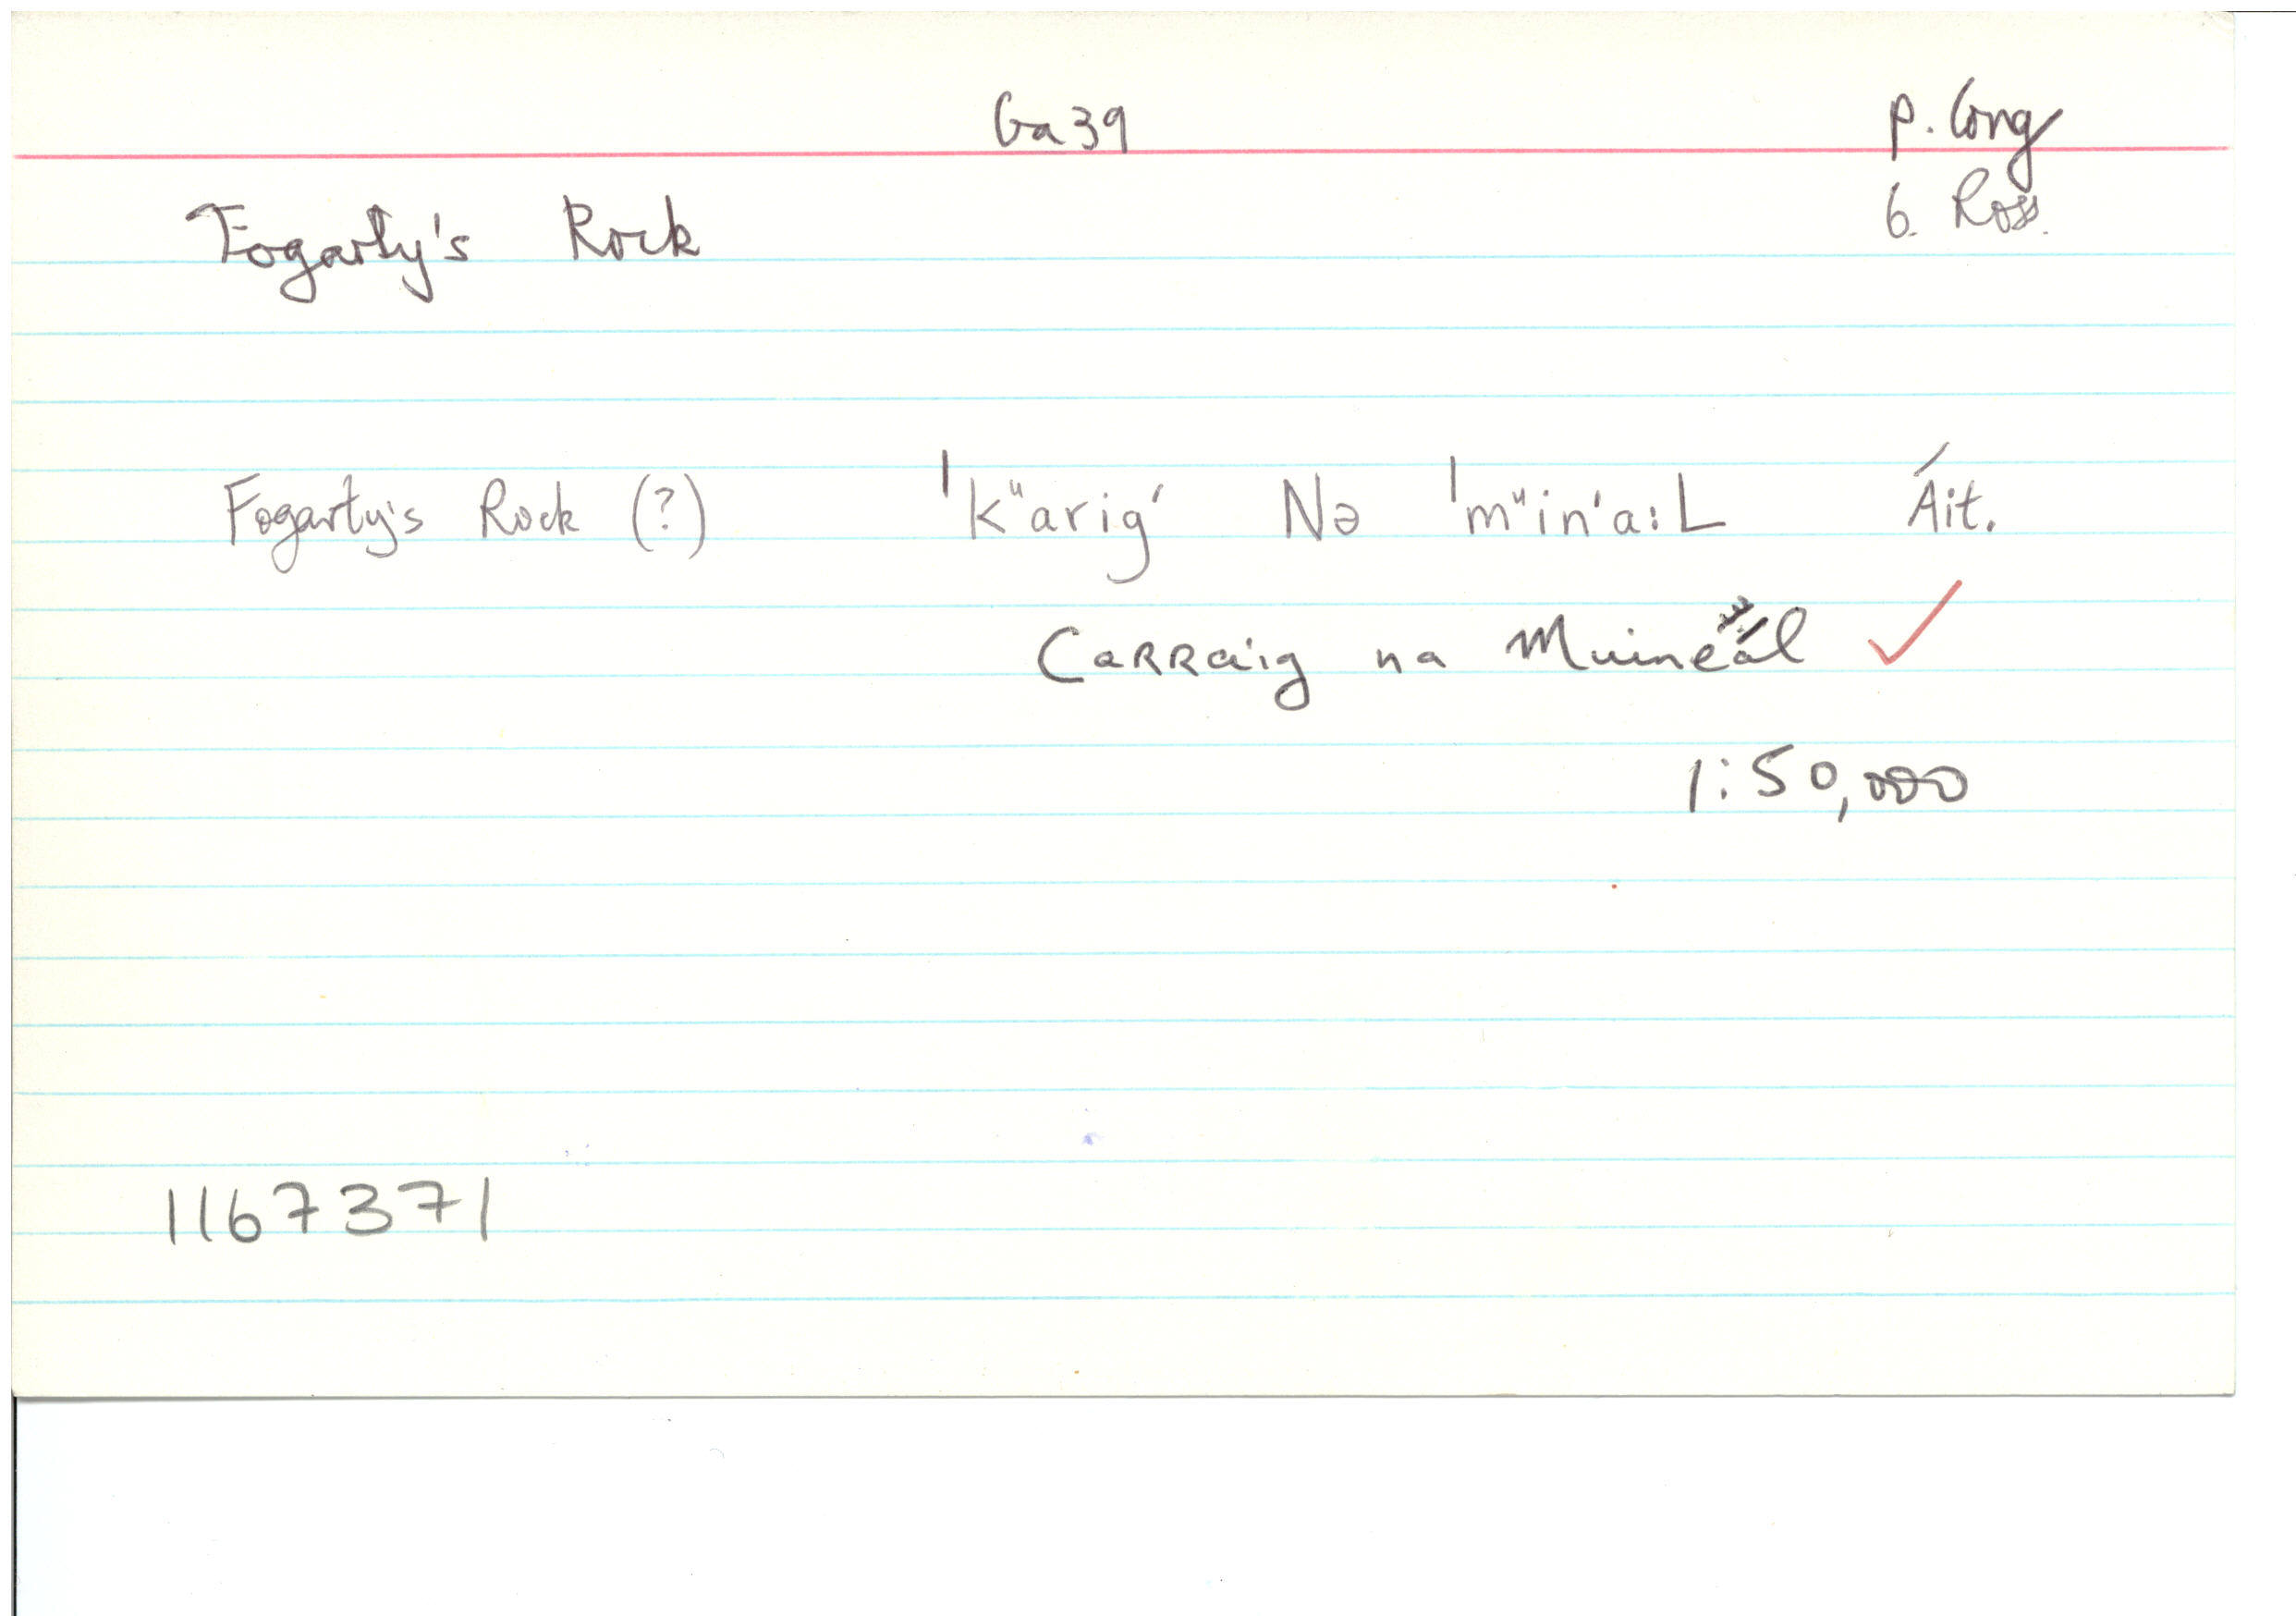 Ga39
p. Cong
Fogarty's Rock
b. Ross.
Fogarty's Rock (?) ˈk"arig' Nə ˈm"in'a:L Áit.
Carraig na Muineál ✓
1:50,000
1167371